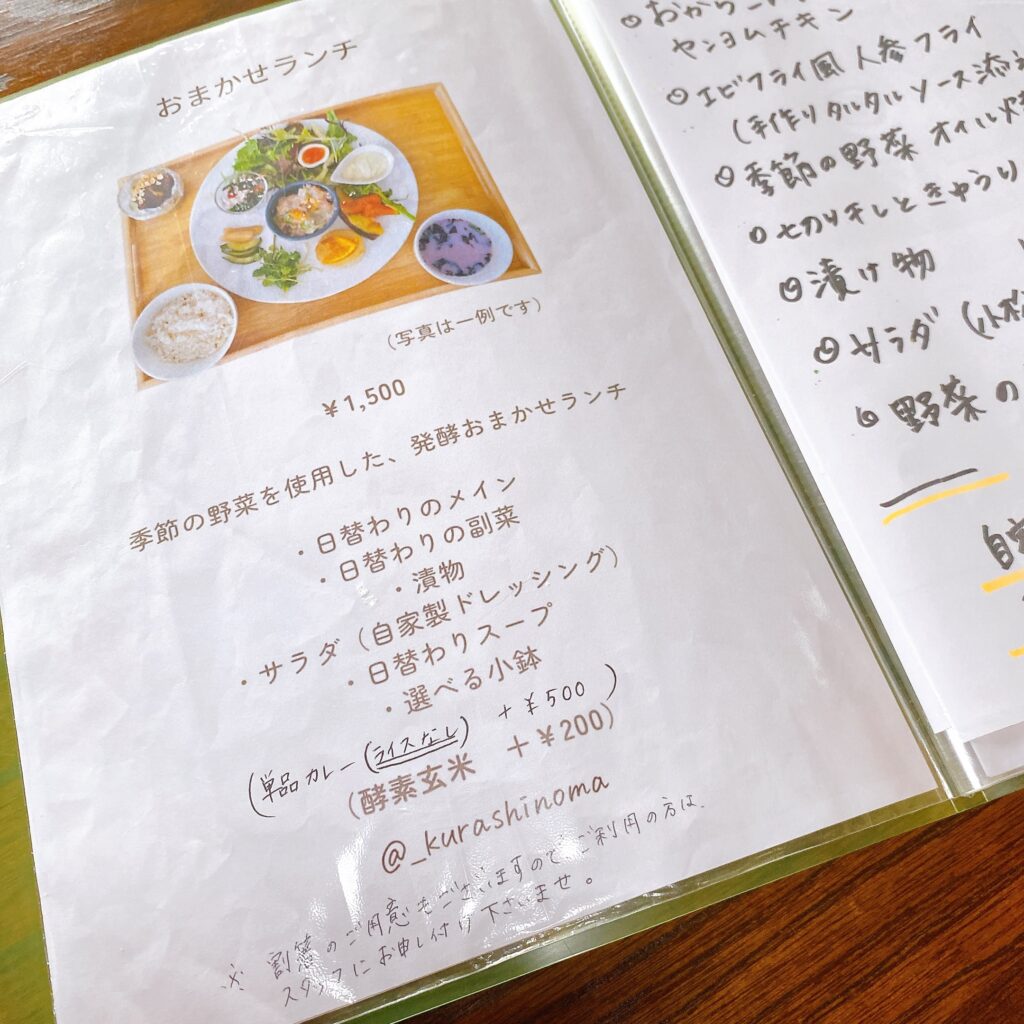 おまかせランチ
(写真は一例です)
¥1,500
季節の野菜を使用した、発酵おまかせランチ
・日替わりのメイン
・日替わりの副菜
・漬物
・サラダ(自家製ドレッシング)
・日替わりスープ
・選べる小鉢
(単品カレー(ライスなし) +¥500)
(酵素玄米 +¥200)
@_kurashinoma
※ 割箸のご用意もございますのでご利用の方は、
スタッフにお申し付け下さいませ。
おから
ヤンニョムチキン
エビフライ風人参フライ
(手作りタルタルソース添え
季節の野菜 オイル
七切り干しときゅうり
漬け物
サラダ
野菜の